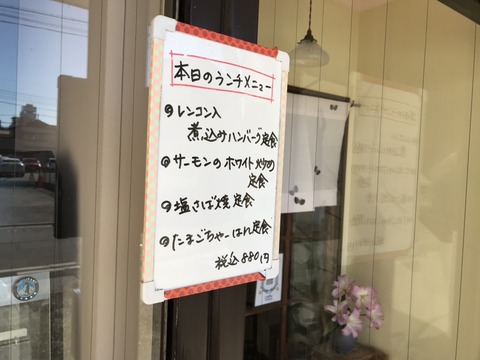 本日のランチメニュー
◎レンコン入
煮込みハンバーグ定食
◎サーモンのホワイト炒め
定食
◎塩さば焼定食
◎たまごちゃーはん定食
税込880円